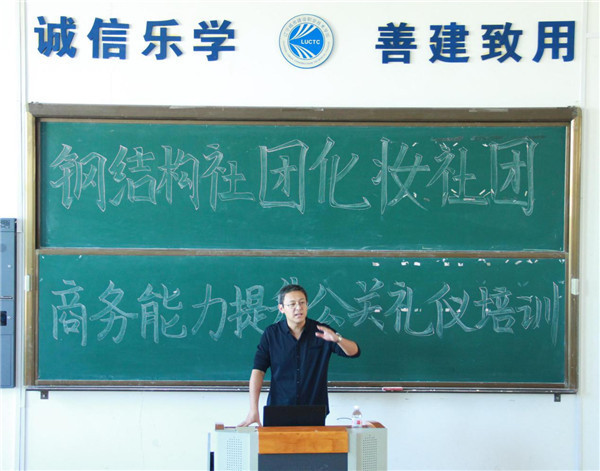 诚信乐学 LUCTC 善建致用
钢结构社团化妆社团
商务能力提升公关礼仪培训